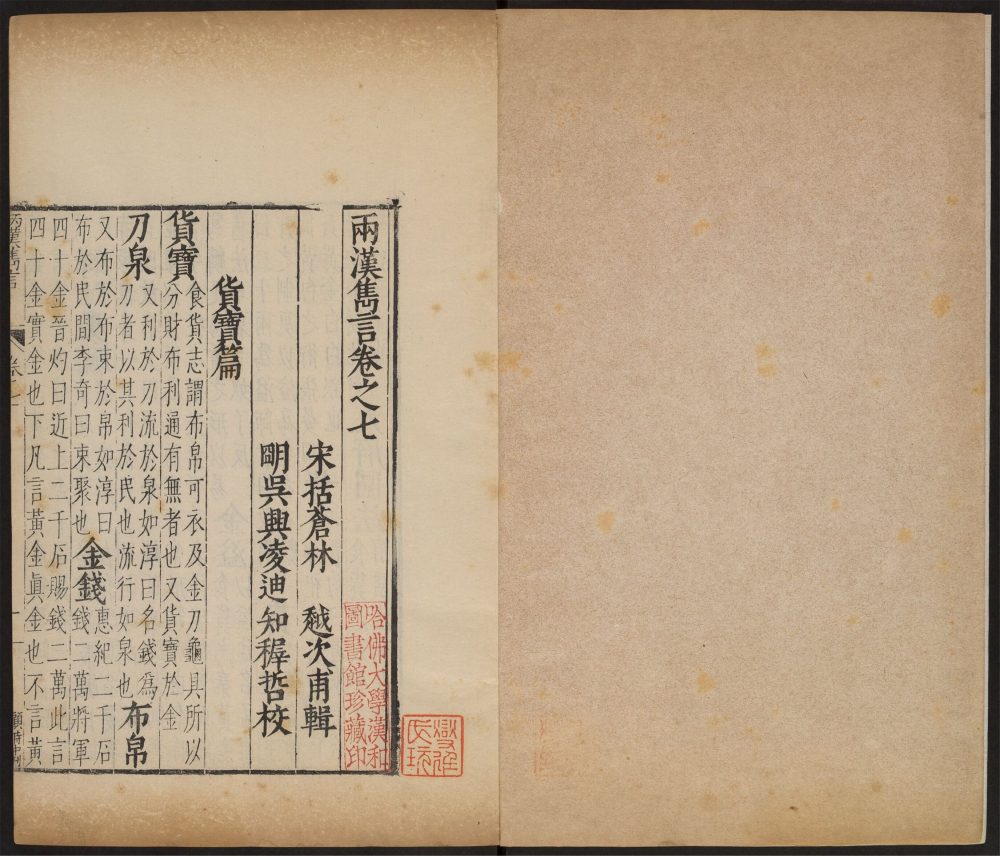 兩漢雋言卷之七
宋括蒼林 越次甫輯
明吳興凌迪知穉哲校
貨寶篇
貨寶
食貨志謂布帛可衣及金刀龜具所以
分財布利通有無者也又貨寶於金
刀泉
又利於刀流於泉如淳曰名錢爲
刀者以其利於民也流行如泉也
布帛
又布於布束於帛如淳曰
布於民間李奇曰束聚也
金錢
惠紀二千石
錢二萬將軍
四十金晉灼曰近上二千石賜錢二萬此言
四十金實金也下凡言黃金眞金也不言黃
兩漢雋言
卷七
哈佛大學漢和
圖書館珍藏印